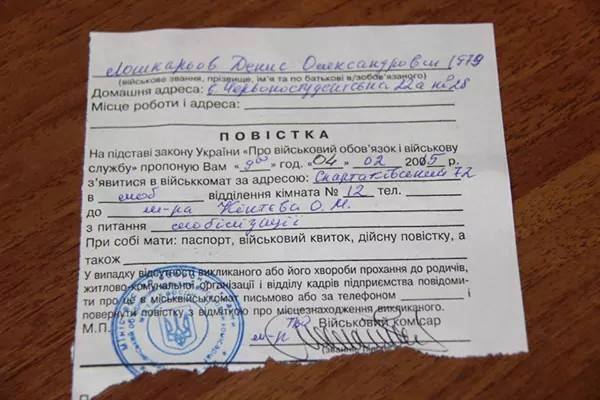 Лошкарьов Денис Олександрович 1979
(військове звання, прізвище, ім'я та по батькові в/зобов'язаного)
Домашня адреса: в. Червоностудентська 22а №28
Місце роботи і адреса:
ПОВІСТКА
На підставі закону України «Про військовий обов'язок і військову
службу» пропоную Вам « 9⁰⁰ » год. «04» 02 2005 р.
з'явитися в військкомат за адресою: 72
в моб відділення кімната № 12 тел.
до м-ра О.М.
з питання мобілізації
При собі мати: паспорт, військовий квиток, дійсну повістку, а
також
У випадку відсутності викликаного або його хвороби прохання до родичів,
житлово-комунальної організації і відділу кадрів підприємства повідоми-
ти про це в міськвійськкомат письмово або за телефоном і
повернути повістку з відміткою про місцезнаходження викликаного.
М.П. Військовий комісар
м-р